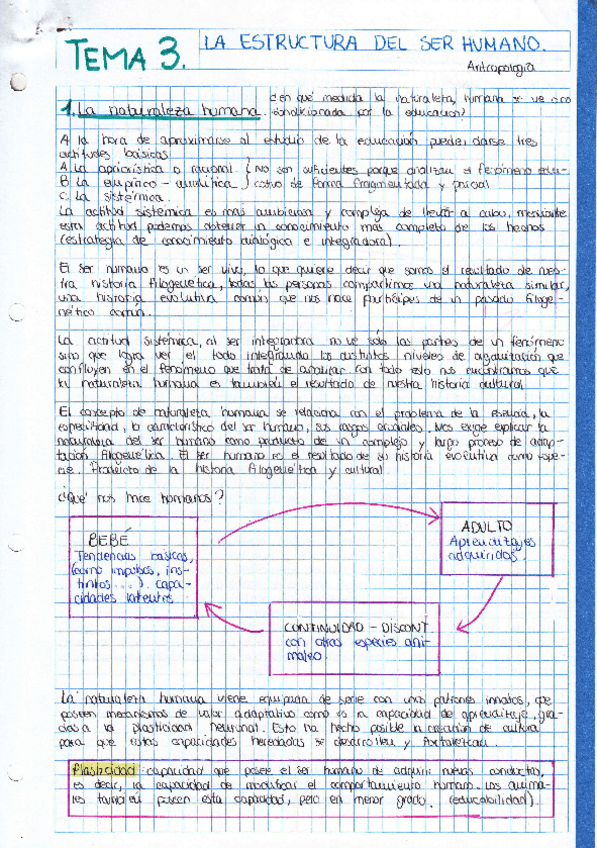 TEMA 3. LA ESTRUCTURA DEL SER HUMANO.
Antropología
1. La naturaleza humana. ¿en qué medida la naturaleza humana se ve o no
condicionada por la educación?
A la hora de aproximarse al estudio de la educación pueden darse tres
actitudes básicas
A. La apriorística o racional. } No son suficientes porque analizan el fenómeno edu-
B. La empírico - analítica } cativo de forma fragmentada y parcial
C. La sistémica.
La actitud sistémica es más ambiciosa y compleja de llevar a cabo, mediante
esta actitud podemos obtener un conocimiento más completo de los hechos
(estrategia de conocimiento dialógica e integradora).
El ser humano es un ser vivo, lo que quiere decir que somos el resultado de nues-
tra historia filogenética, todas las personas compartimos una naturaleza similar,
una historia evolutiva común que nos hace partícipes de un pasado filoge-
nético común.
La actitud sistémica, al ser integradora no ve sólo las partes de un fenómeno
sino que logra ver el todo integrando los distintos niveles de organización que
confluyen en el fenómeno que trata de analizar. Con todo esto nos encontramos que
la naturaleza humana es también el resultado de nuestra historia cultural
El concepto de naturaleza humana se relaciona con el problema de la esencia, la
especificidad, lo característico del ser humano, sus rasgos cruciales. Nos exige explicar la
naturaleza del ser humano como producto de un complejo y largo proceso de adap-
tación filogenética. El ser humano es el resultado de su historia evolutiva como espe-
cie. Producto de la historia filogenética y cultural
¿Qué nos hace humanos?
BEBÉ
Tendencias básicas,
(como impulsos, ins-
tintos ...) capa-
cidades latentes
ADULTO
Aprendizajes
adquiridos.
CONTINUIDAD - DISCONT.
con otras especies ani-
males.
La naturaleza humana viene equipada de serie con unos patrones innatos, que
poseen mecanismos de valor adaptativo como es la capacidad de aprendizaje, gra-
cias a la plasticidad neuronal. Esto ha hecho posible la creación de cultura
para que estas capacidades heredadas se desarrollen y fortalezcan.
Plasticidad: capacidad que posee el ser humano de adquirir nuevas conductas,
es decir, la capacidad de modificar el comportamiento humano. Los anima-
les también poseen esta capacidad, pero en menor grado. (educabilidad).